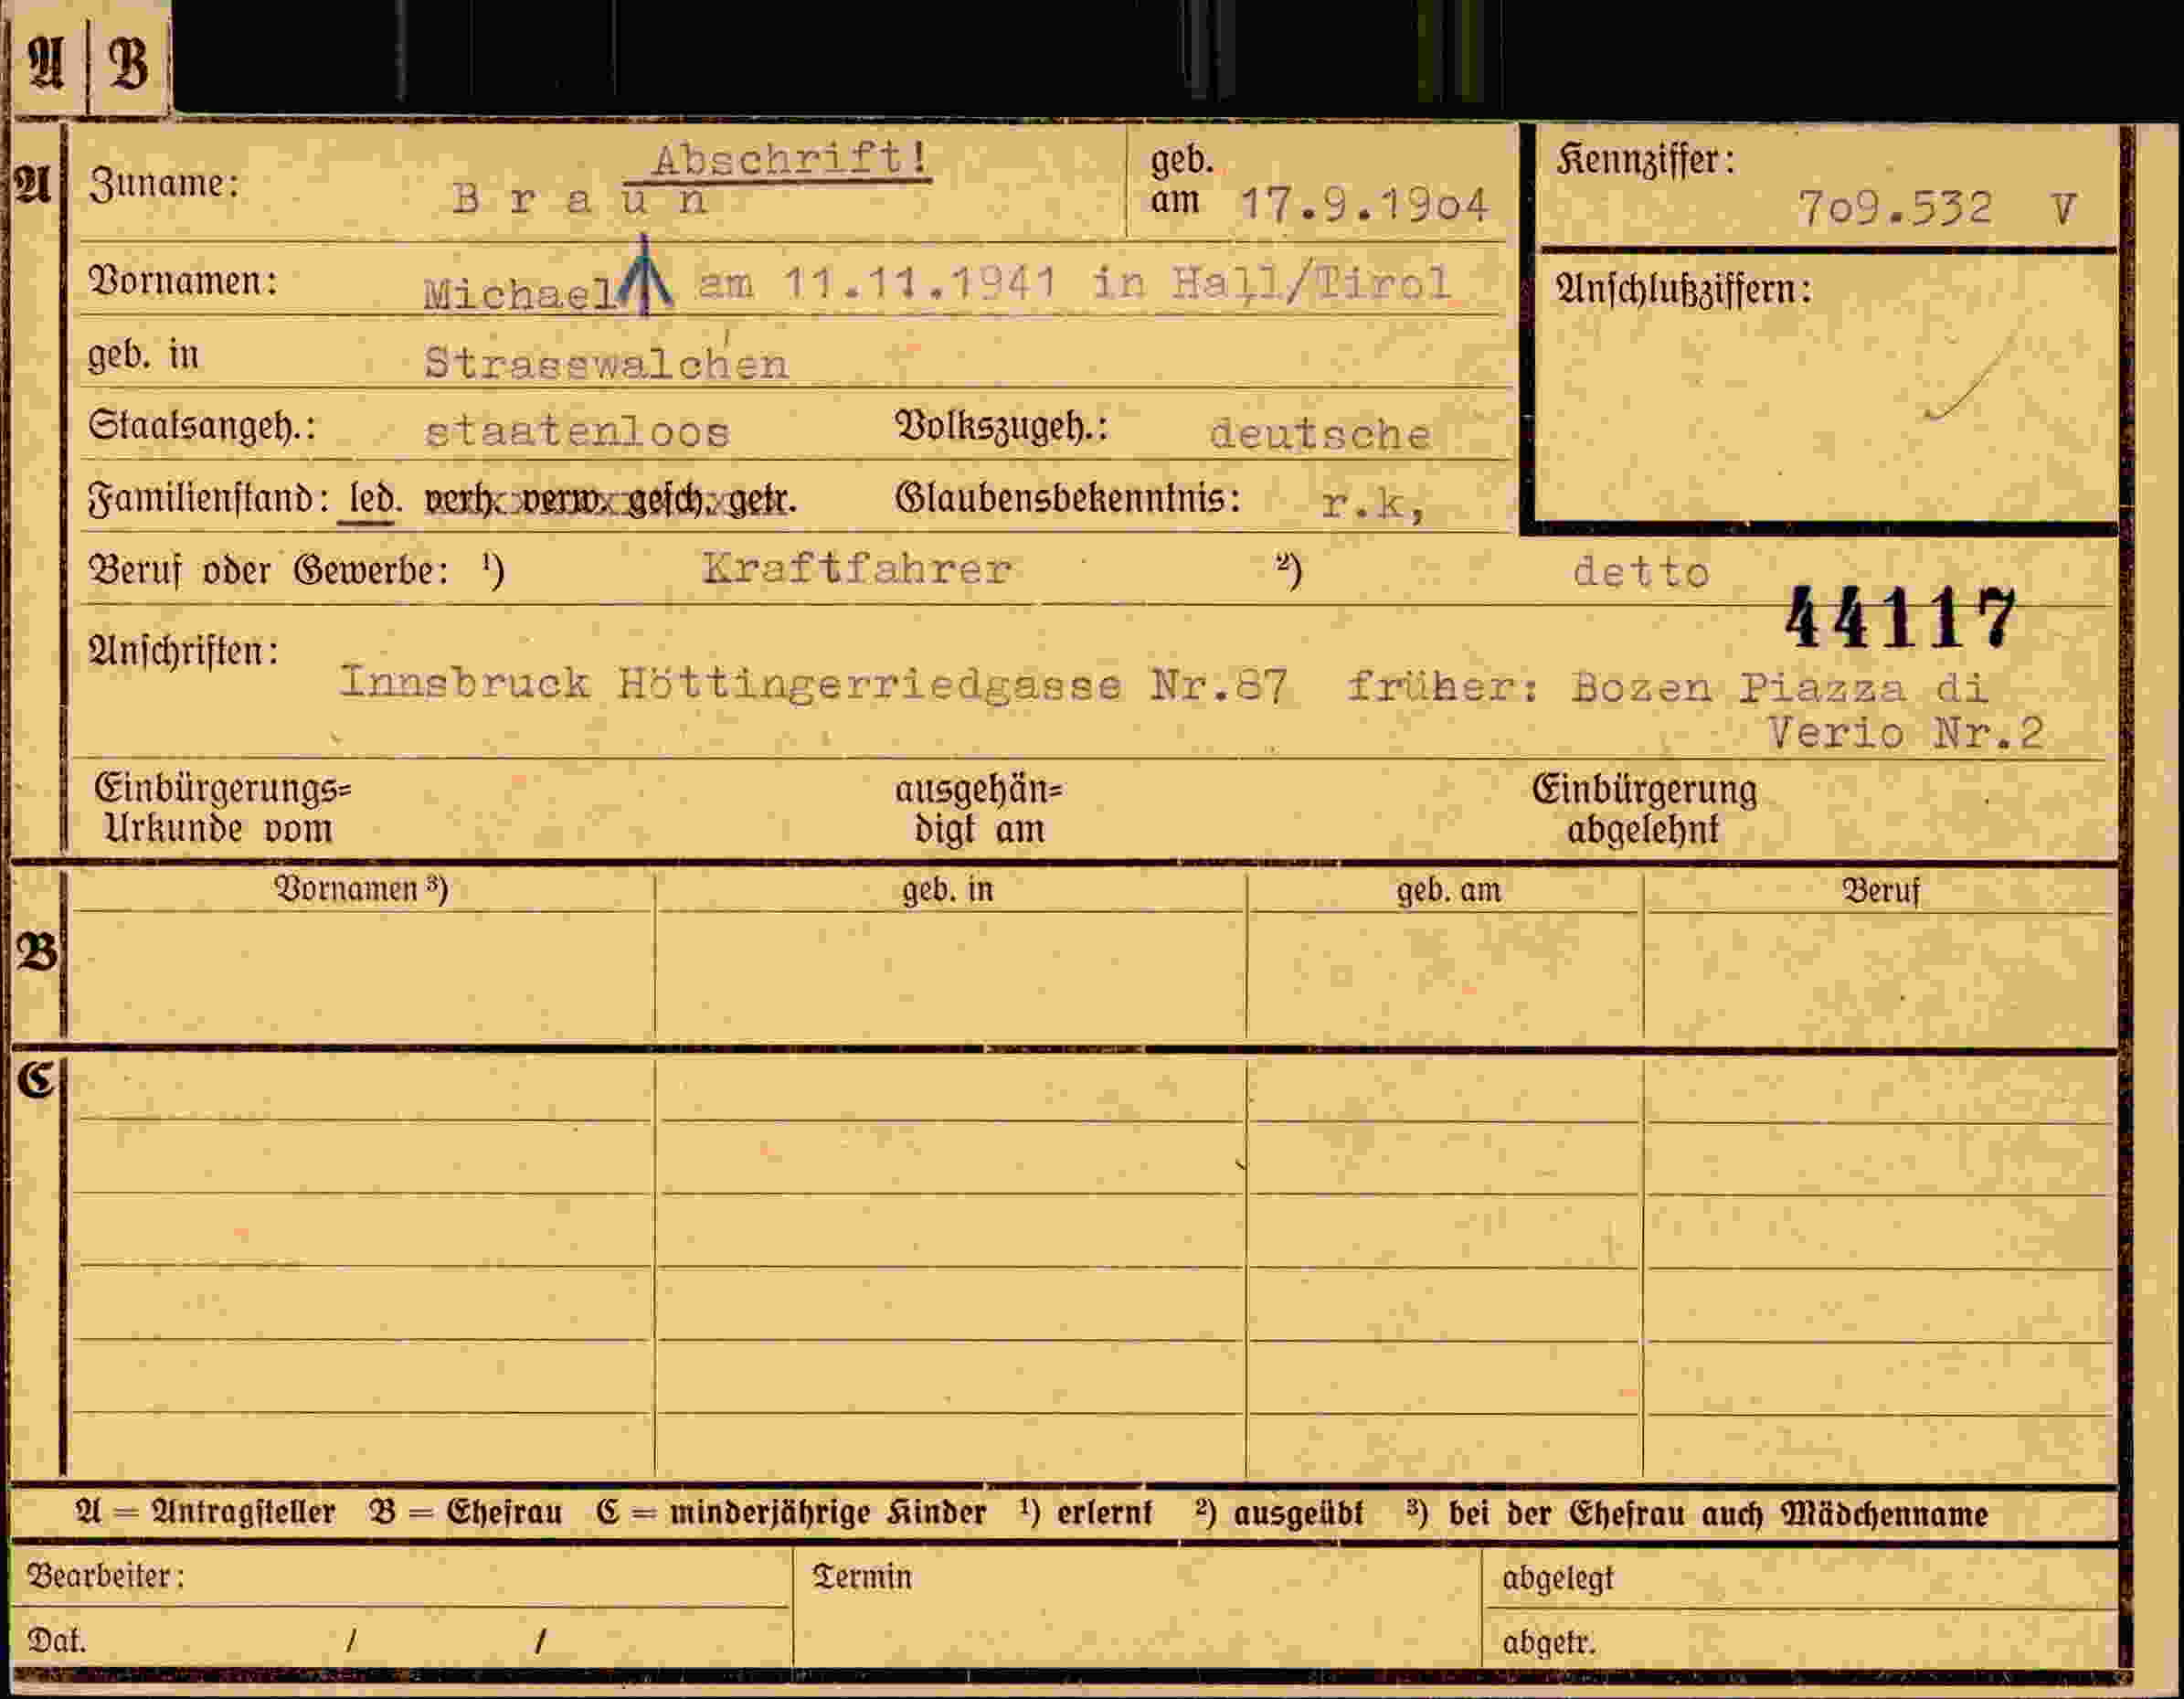 A B
Abschrift!
A Zuname: B r a u n geb. am 17.9.19o4 Kennziffer: 7o9.532 V
Vornamen: Michael am 11.11.1941 in Hall/Tirol Anschlußziffern:
geb. in Strasswalchen
Staatsangeh.: staatenloos Volkszugeh.: deutsche
Familienstand: led. verh. verw. gesch. getr. Glaubensbekenntnis: r.k,
Beruf oder Gewerbe: ¹) Kraftfahrer ²) detto
44117
Anschriften: Innsbruck Höttingerriedgasse Nr.87 früher: Bozen Piazza di
Verio Nr.2
Einbürgerungs= ausgehän= Einbürgerung
Urkunde vom digt am abgelehnt
Vornamen ³) geb. in geb. am Beruf
B
C
A = Antragsteller B = Ehefrau C = minderjährige Kinder ¹) erlernt ²) ausgeübt ³) bei der Ehefrau auch Mädchenname
Bearbeiter: Termin abgelegt
Dat. / / abgetr.